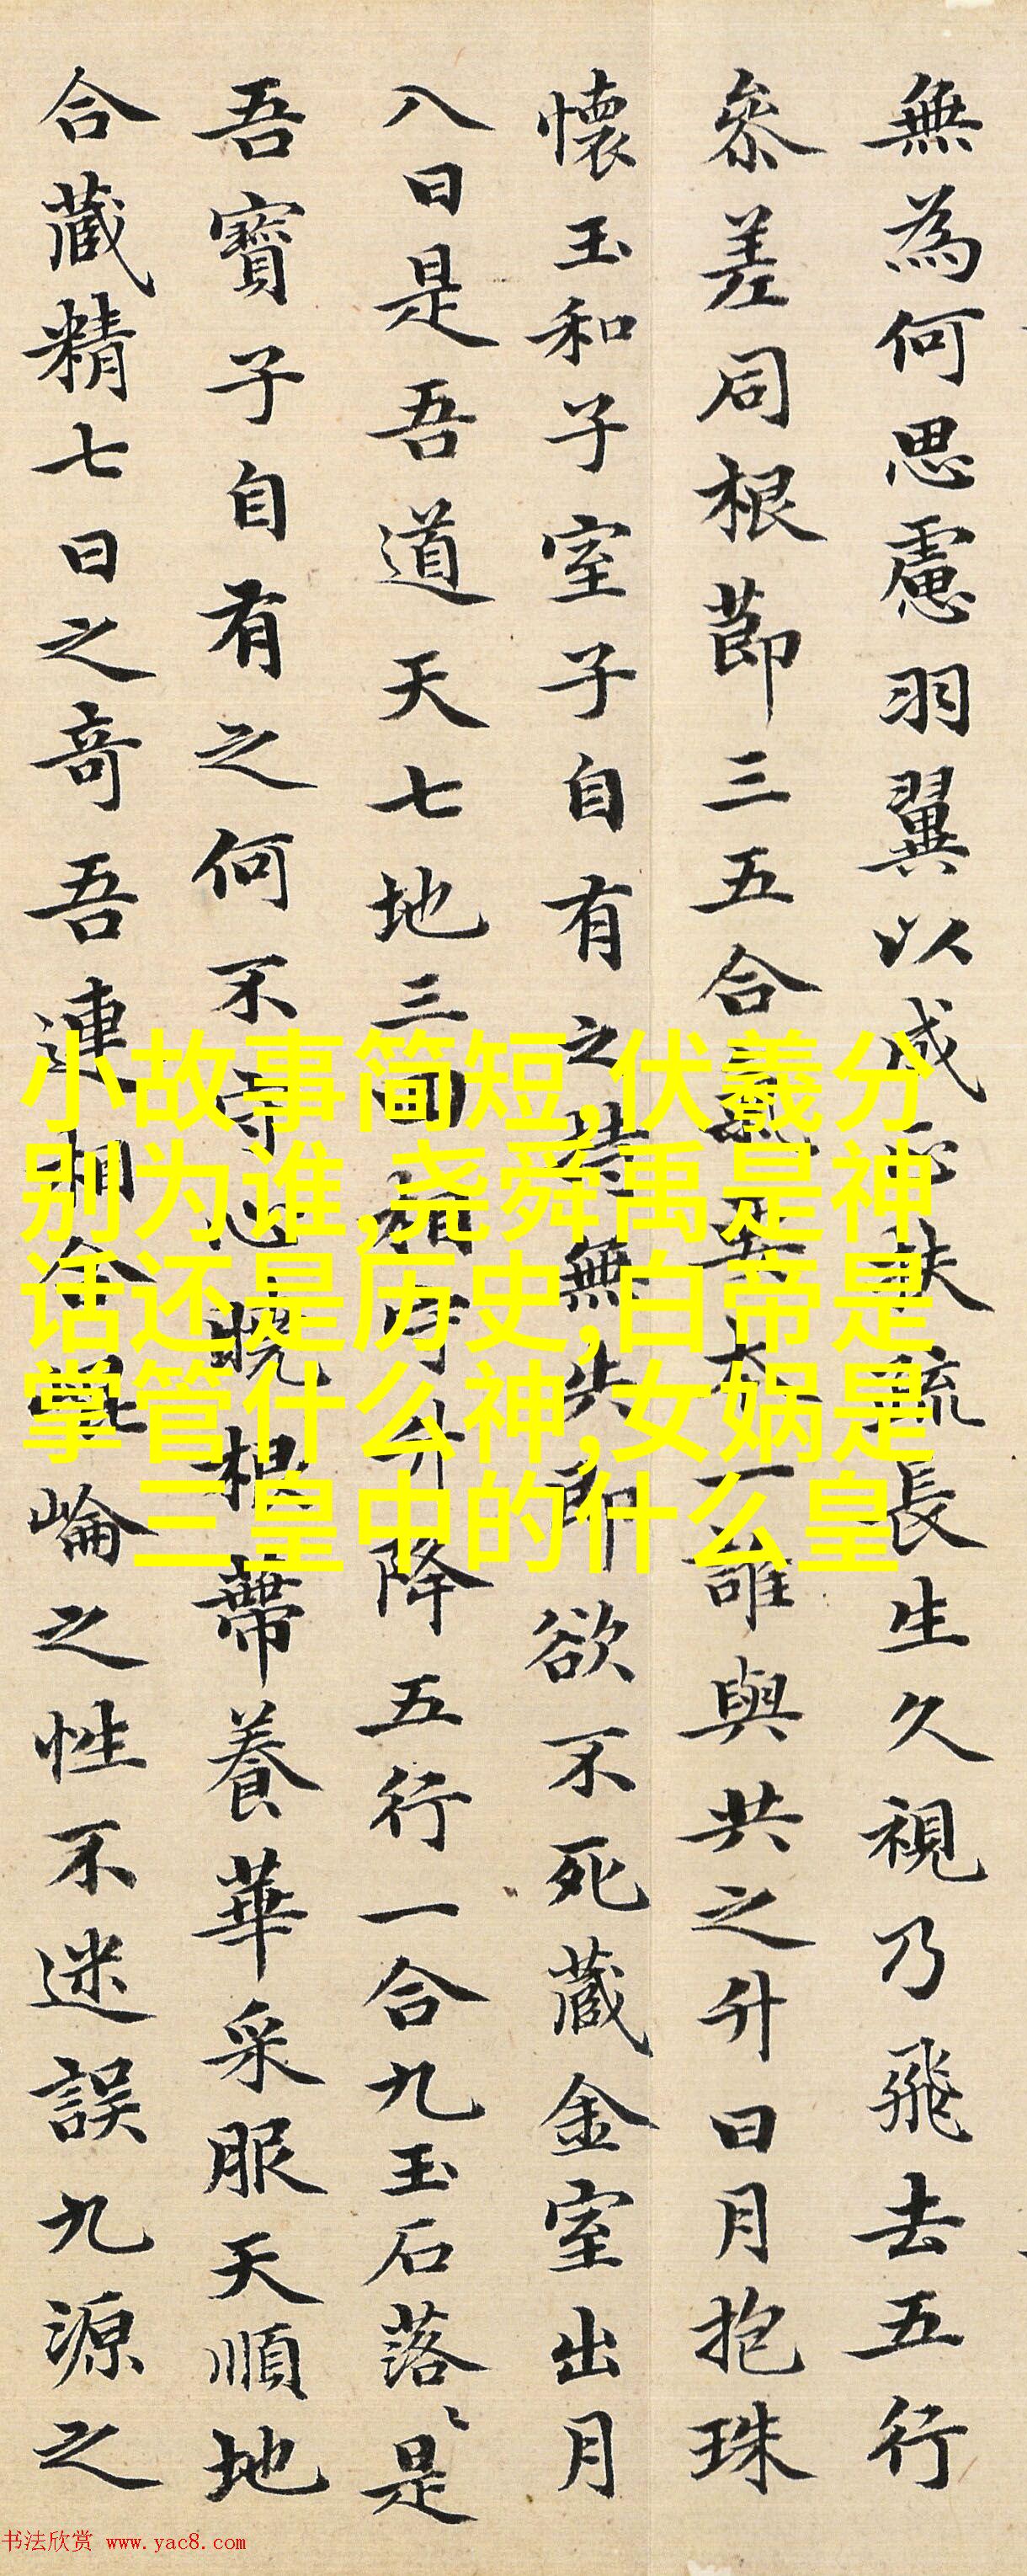 無為何思慮羽翼以成正扶疏長生久視乃飛去五行
參差同根節三五合氣要本一誰與共之升日月抱珠
懷玉和子室子自有之持無失即欲不死藏金室出月
八日是吾道天七地三回相守升降五行一合九玉石落〻是
吾寶子自有之何不守心曉根蔕養華采服天順地
合藏精七日之奇吾連相合崑崙之性不迷誤九源之
小故事简短,伏羲分
别为谁,尧舜禹是神
话还是历史,白帝是
掌管什么神,女娲是
三皇中的什么皇
书法欣赏 www.yac8.com